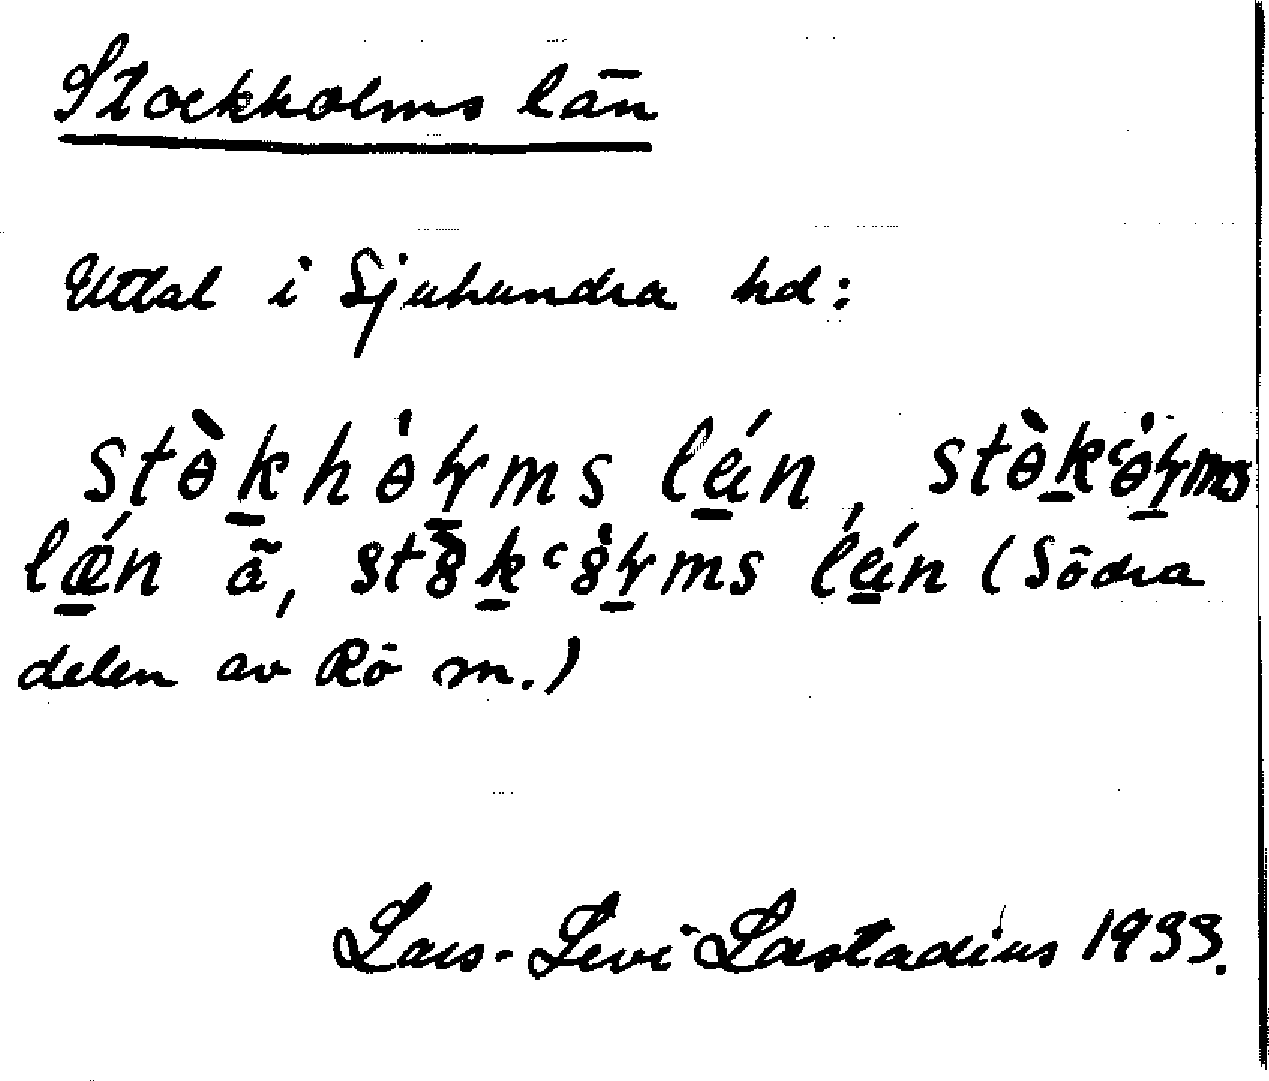 Stockholms län
Uttal i Sjuhundra hd:
stɵ̀k̲hɵ̇ɽ̲ms lǽ̲n, stɵ̀k̲ʿɵ̇ɽ̲ms
lǽ̲n ã, st8̀k̲ʿ8̇ɽ̲ms lǽ̲n (Södra
delen av Rö sn.)
Lars-Levi Læstadius 1933.